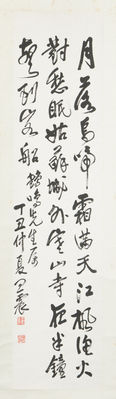 月落烏啼霜滿天江楓漁火
對愁眠姑蘇城外寒山寺夜半鐘
聲到客船 先生屬
丁丑仲夏